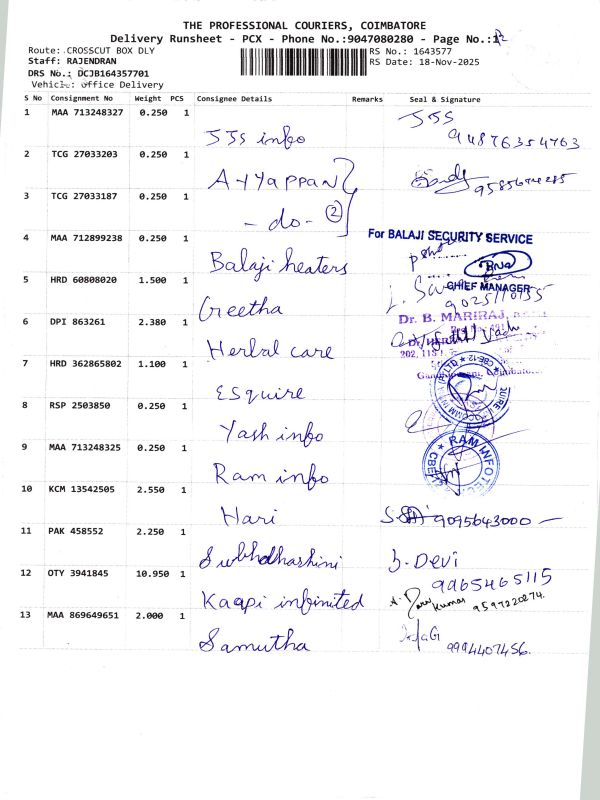 THE PROFESSIONAL COURIERS, COIMBATORE
Delivery Runsheet - PCX - Phone No.:9047080280 - Page No.:1
Route: CROSSCUT BOX DLY
RS No.: 1643577
Staff: RAJENDRAN
RS Date: 18-Nov-2025
DRS No.: DCJB164357701
Vehicle: office Delivery
S No Consignment No Weight PCS Consignee Details Remarks Seal & Signature
1 MAA 713248327 0.250 1 JJs info JJS
94876354763
2 TCG 27033203 0.250 1 Ayyappan
3 TCG 27033187 0.250 1 - do - 2
For BALAJI SECURITY SERVICE
4 MAA 712899238 0.250 1 Balaji heaters
CHIEF MANAGER
5 HRD 60808020 1.500 1 Geetha
Dr. B. MARIRAJ,
6 DPI 863261 2.380 1 Herbal care
7 HRD 362865802 1.100 1 Esquire
8 RSP 2503850 0.250 1 Yash info
9 MAA 713248325 0.250 1 Ram info
RAM INFOTEC
10 KCM 13542505 2.550 1 Hari 9095643000
11 PAK 458552 2.250 1 Subhdharshini J. Devi
9965465115
12 OTY 3941845 10.950 1 Kaapi infinited
Kumar 9597220274.
13 MAA 869649651 2.000 1 Samutha
9994407456.